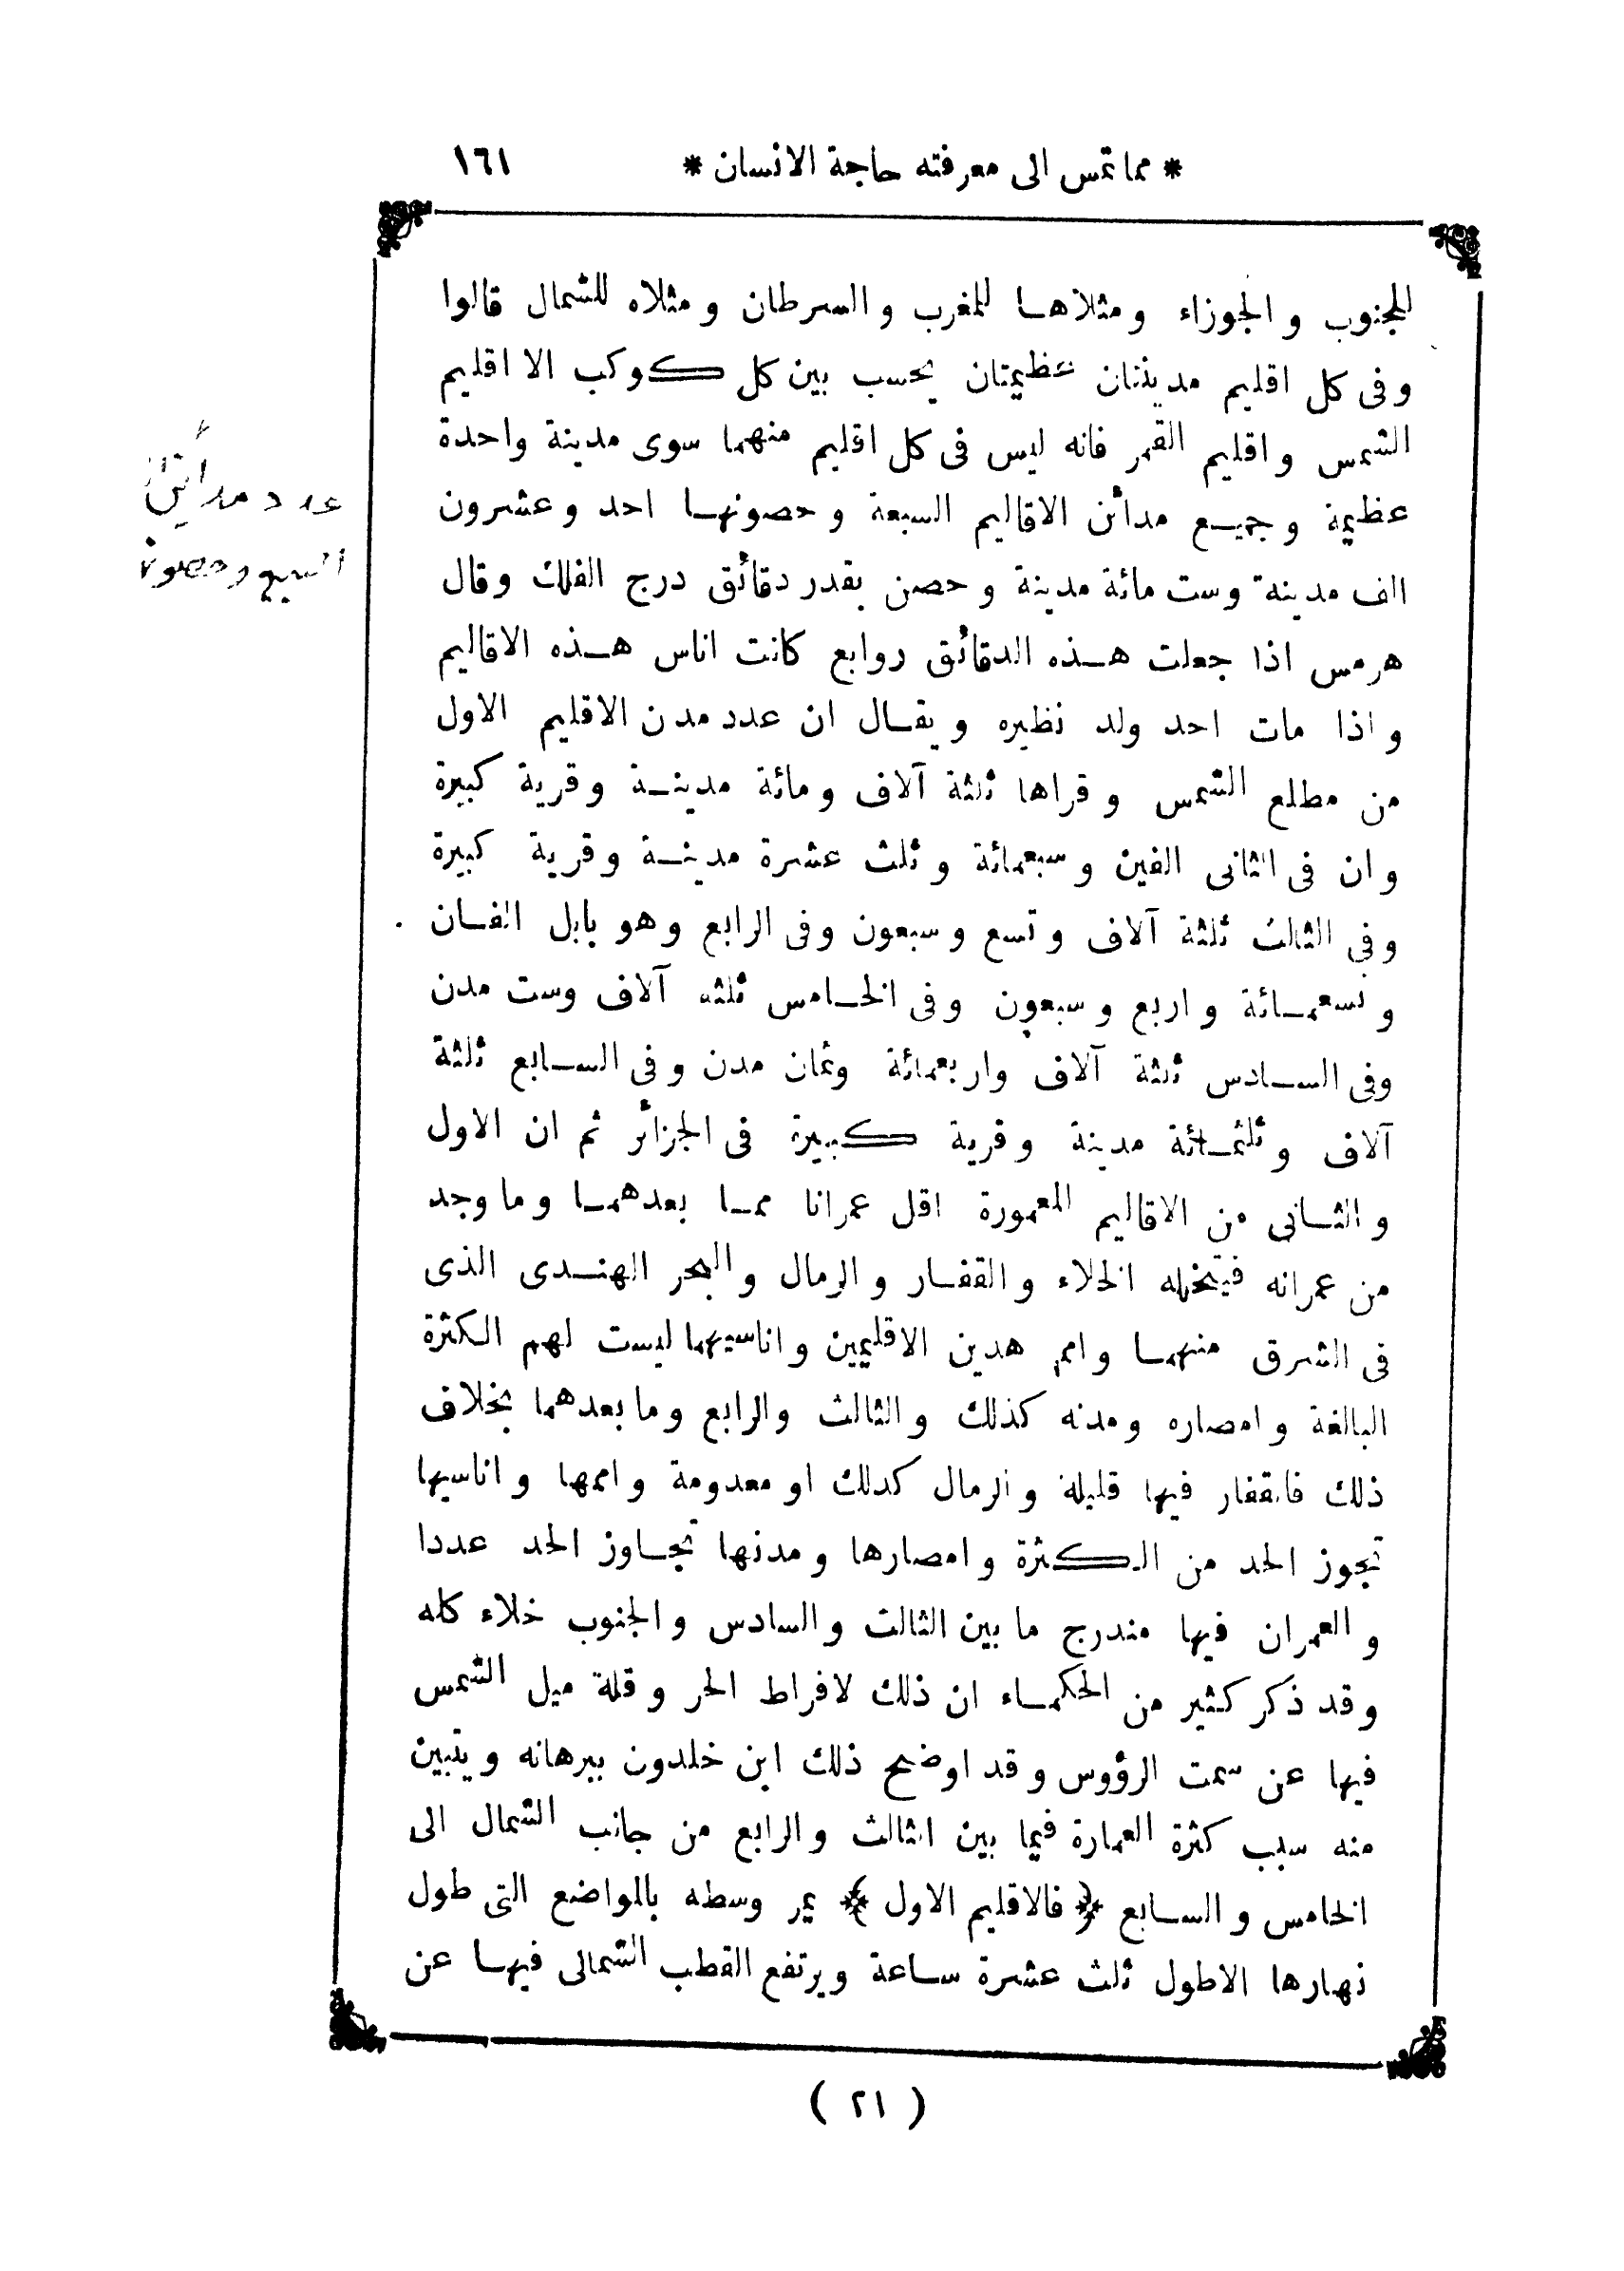 * مما تمس الى معرفته حاجة الانسان * ١٦١
للجنوب والجوزاء ومثلاها للمغرب والسرطان ومثلاه للشمال قالوا
وفى كل اقليم مدينتان عظيمتان بحسب بين كل كوكب الا اقليم
الشمس واقليم القمر فانه ليس فى كل اقليم منهما سوى مدينة واحدة
عظيمة وجميع مدائن الاقاليم السبعة وحصونها احد وعشرون
الف مدينة وست مائة مدينة وحصن بقدر دقائق درج الفلك وقال
هرمس اذا جعلت هذه الدقائق روابع كانت اناس هذه الاقاليم
واذا مات احد ولد نظيره ويقال ان عدد مدن الاقليم الاول
من مطلع الشمس وقراها ثلثة آلاف ومائة مدينة وقرية كبيرة
وان فى الثانى الفين وسبعمائة وثلث عشرة مدينة وقرية كبيرة
وفى الثالث ثلثة آلاف وتسع وسبعون وفى الرابع وهو بابل الفان
وتسعمائة واربع وسبعون وفى الخامس ثلثة آلاف وست مدن
وفى السادس ثلثة آلاف واربعمائة وثمان مدن وفى السابع ثلثة
آلاف وثلثمائة مدينة وقرية كبيرة فى الجزائر ثم ان الاول
والثانى من الاقاليم المعمورة اقل عمرانا مما بعدهما وما وجد
من عمرانه فيتخلله الخلاء والقفار والرمال والبحر الهندى الذى
فى الشرق منهما وامم هدين الاقليمين واناسيهما ليست لهم الكثرة
البالغة وامصاره ومدنه كذلك والثالث والرابع وما بعدهما بخلاف
ذلك فالقفار فيها قليلة والرمال كدلك او معدومة واممها واناسيها
تجوز الحد من الكثرة وامصارها ومدنها تجاوز الحد عددا
والعمران فيها مندرج ما بين الثالث والسادس والجنوب خلاء كله
وقد ذكر كثير من الحكماء ان ذلك لافراط الحر وقلة ميل الشمس
فيها عن سمت الرؤوس وقد اوضح ذلك ابن خلدون ببرهانه ويتبين
منه سبب كثرة العمارة فيما بين الثالث والرابع من جانب الشمال الى
الخامس والسابع ﴿ فالاقليم الاول ﴾ يمر وسطه بالمواضع التى طول
نهارها الاطول ثلث عشرة ساعة ويرتفع القطب الشمالى فيها عن
( ٢١ )
عدد مدائن
السبع وحصونه